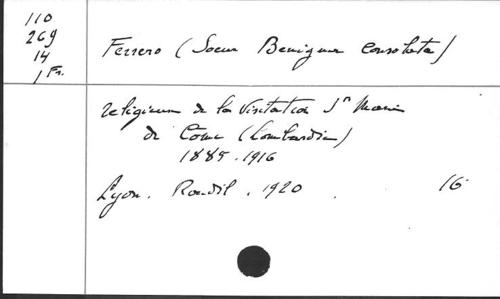 110
269
14
1 Fr.
Ferrero (Soeur Benigna Consolata)
religieuse de la Visitation Ste Marie
de Come (Lombardie)
1885-1916
Lyon. Roudil. 1920. 16